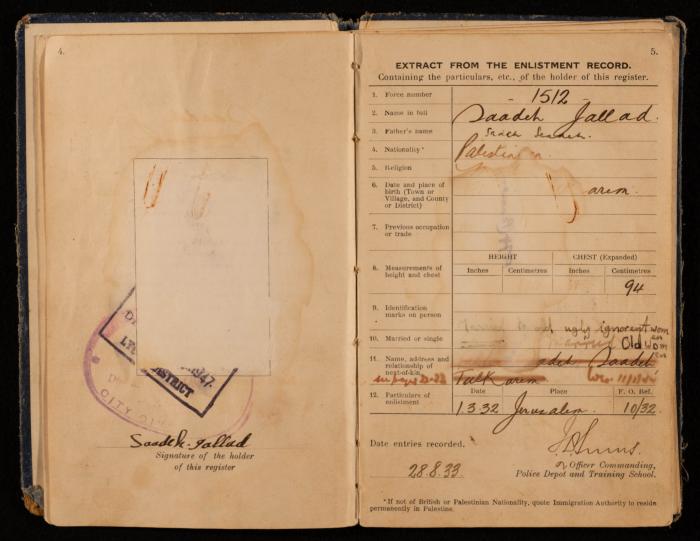 4.
1947.
DISTRICT
CITY
Saadeh Jallad
Signature of the holder
of this register
5.
EXTRACT FROM THE ENLISTMENT RECORD.
Containing the particulars, etc., of the holder of this register.
1. Force number
1512
2. Name in full
Saadeh Jallad.
3. Father's name
4. Nationality*
Palestinian
5. Religion
6. Date and place of
birth (Town or
Village, and County
or District)
arem.
7. Previous occupation
or trade
8. Measurements of
height and chest
HEIGHT
CHEST (Expanded)
Inches
Centimetres
Inches
Centimetres
94
9. Identification
marks on person
ugly ignorent wom
10. Married or single
married Old wom
11. Name, address and
relationship of
next-of-kin
adeh, Saadeh
Tulkarem
12. Particulars of
enlistment
Date
Place
F. O. Ref.
1 3 32
Jerusalem.
10/32.
Date entries recorded.
28.8.33
Officer Commanding,
Police Depot and Training School.
*If not of British or Palestinian Nationality, quote Immigration Authority to reside
permanently in Palestine.